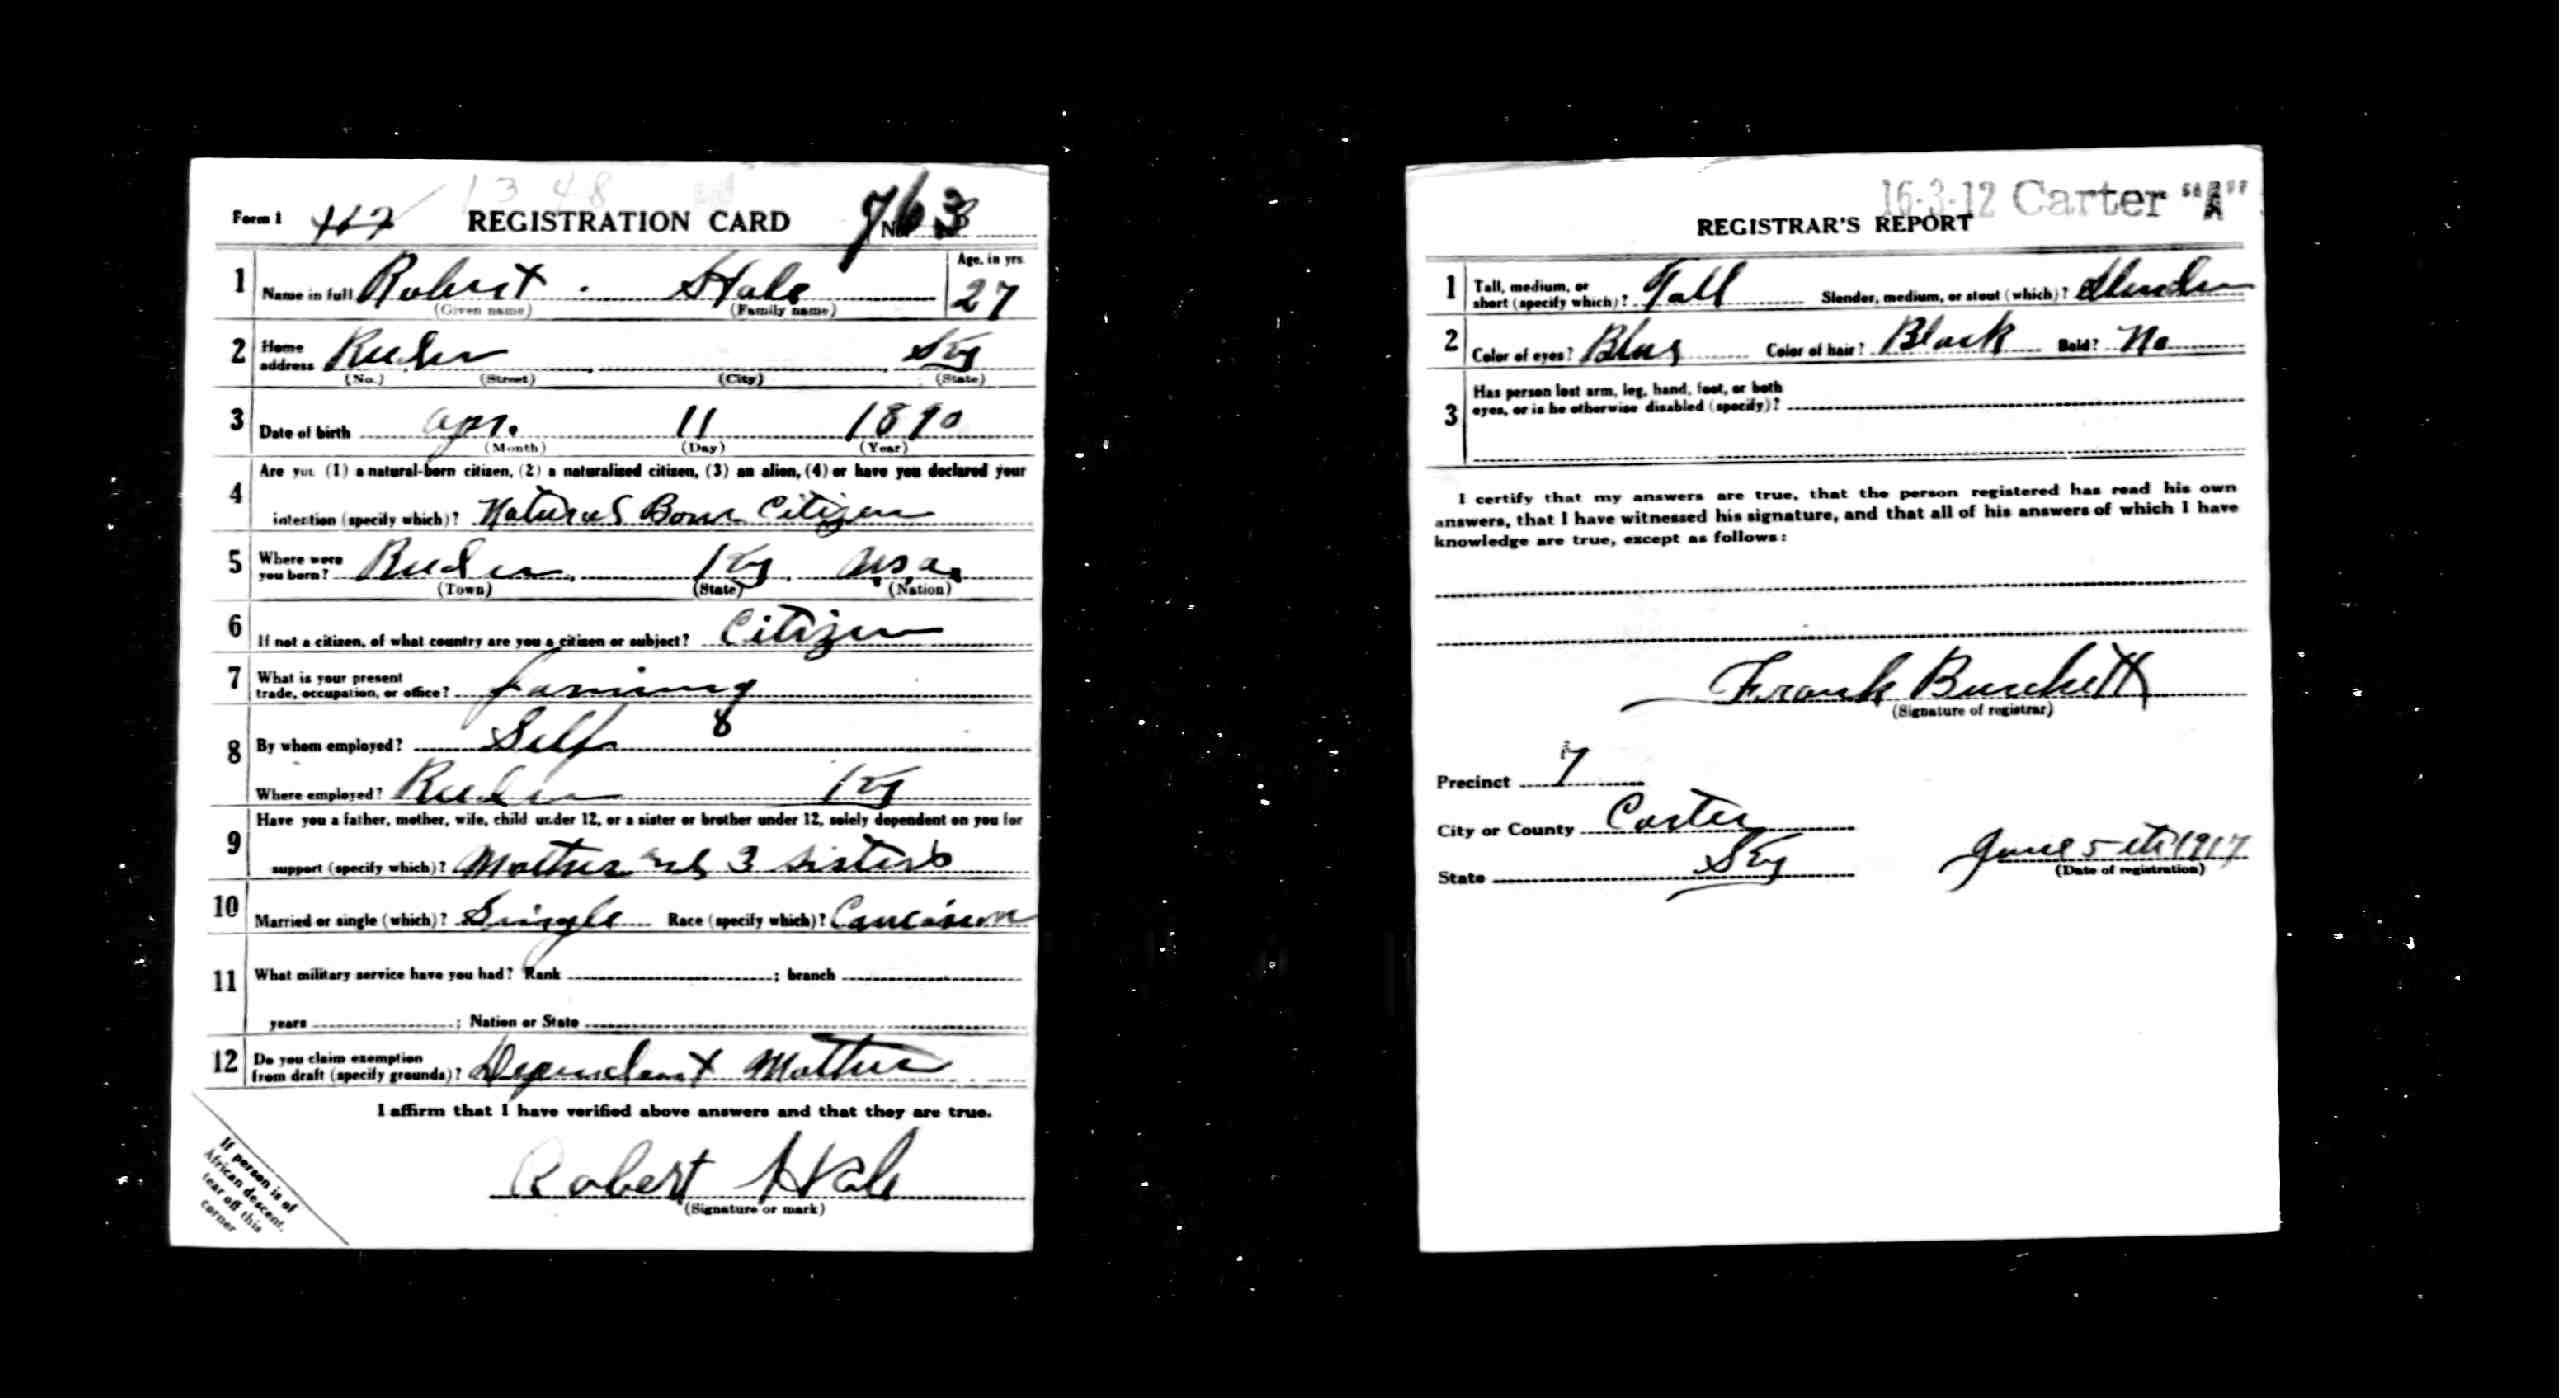 1348
Form 1 REGISTRATION CARD No. 763
1 Name in full Robert Hale Age, in yrs. 27
(Given name) (Family name)
2 Home address Ky
(No.) (Street) (City) (State)
3 Date of birth Apr. 11 1890
(Month) (Day) (Year)
4 Are you (1) a natural-born citizen, (2) a naturalized citizen, (3) an alien, (4) or have you declared your
intention (specify which)? Natural Born Citizen
5 Where were you born? Ky U.S.A.
(Town) (State) (Nation)
6 If not a citizen, of what country are you a citizen or subject? Citizen
7 What is your present
trade, occupation, or office? farming
8 By whom employed? Self
Where employed? Ky
9 Have you a father, mother, wife, child under 12, or a sister or brother under 12, solely dependent on you for
support (specify which)? Mother and 3 sisters
10 Married or single (which)? Single Race (specify which)? Caucasian
11 What military service have you had? Rank ; branch
years ; Nation or State
12 Do you claim exemption
from draft (specify grounds)? Dependent Mother
I affirm that I have verified above answers and that they are true.
Robert Hale
(Signature or mark)
If person is of
African descent,
tear off this
corner
16-3-12 Carter "A"
REGISTRAR'S REPORT
1 Tall, medium, or
short (specify which)? Tall Slender, medium, or stout (which)? Slender
2 Color of eyes? Blue Color of hair? Black Bald? No
3 Has person lost arm, leg, hand, foot, or both
eyes, or is he otherwise disabled (specify)?
I certify that my answers are true, that the person registered has read his own
answers, that I have witnessed his signature, and that all of his answers of which I have
knowledge are true, except as follows:
Frank Burchett
(Signature of registrar)
Precinct 7
City or County Carter
State Ky June 5th 1917
(Date of registration)